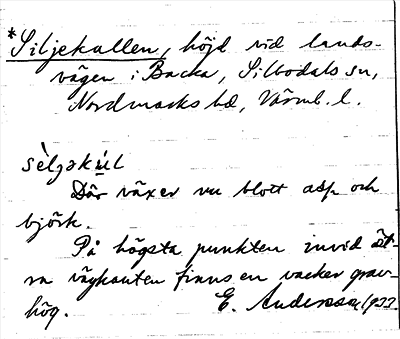 *Siljekullen, höjd vid lands-
vägen i Backa, Silbodals sn,
Nordmarks hd, Värml. l.
sèljəkúl
Där växer nu blott asp och
björk.
På högsta punkten invid öst-
ra vägkanten finns en vacker grav-
hög. E. Andersson 1933.